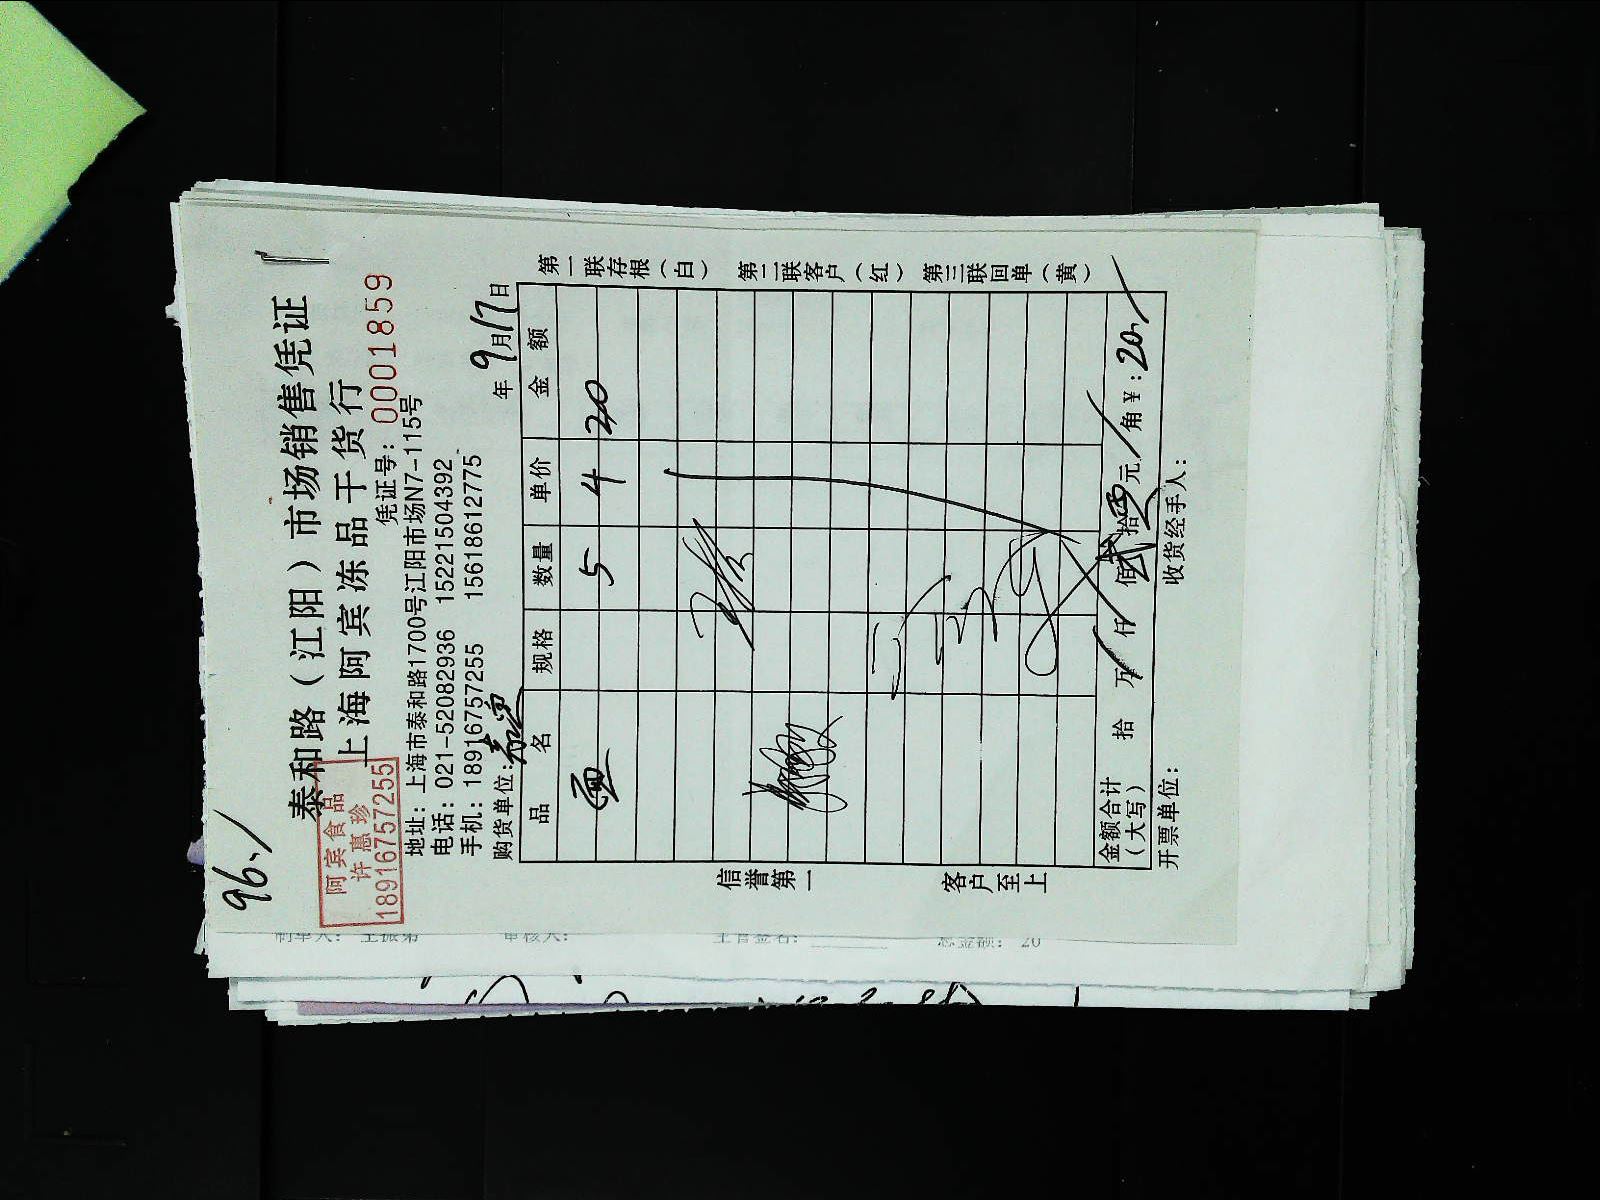 96.
泰和路（江阳）市场销售凭证
上海阿宾冻品干货行
阿宾食品
许惠珍
18916757255
凭证号：0001859
地址：上海市泰和路1700号江阳市场N7-115号
电话：021-52082936 15221504392
手机：18916757255 15618612775
购货单位： 年9月17日
品名 规格 数量 单价 金额
面 5 4 20
信誉第一
客户至上
第一联存根（白） 第二联客户（红） 第三联回单（黄）
金额合计（大写） 拾 万 仟 佰 贰拾 元 角 ¥：20.
开票单位： 收货经手人：
制单人： 审核人： 主管签名： 总金额： 20